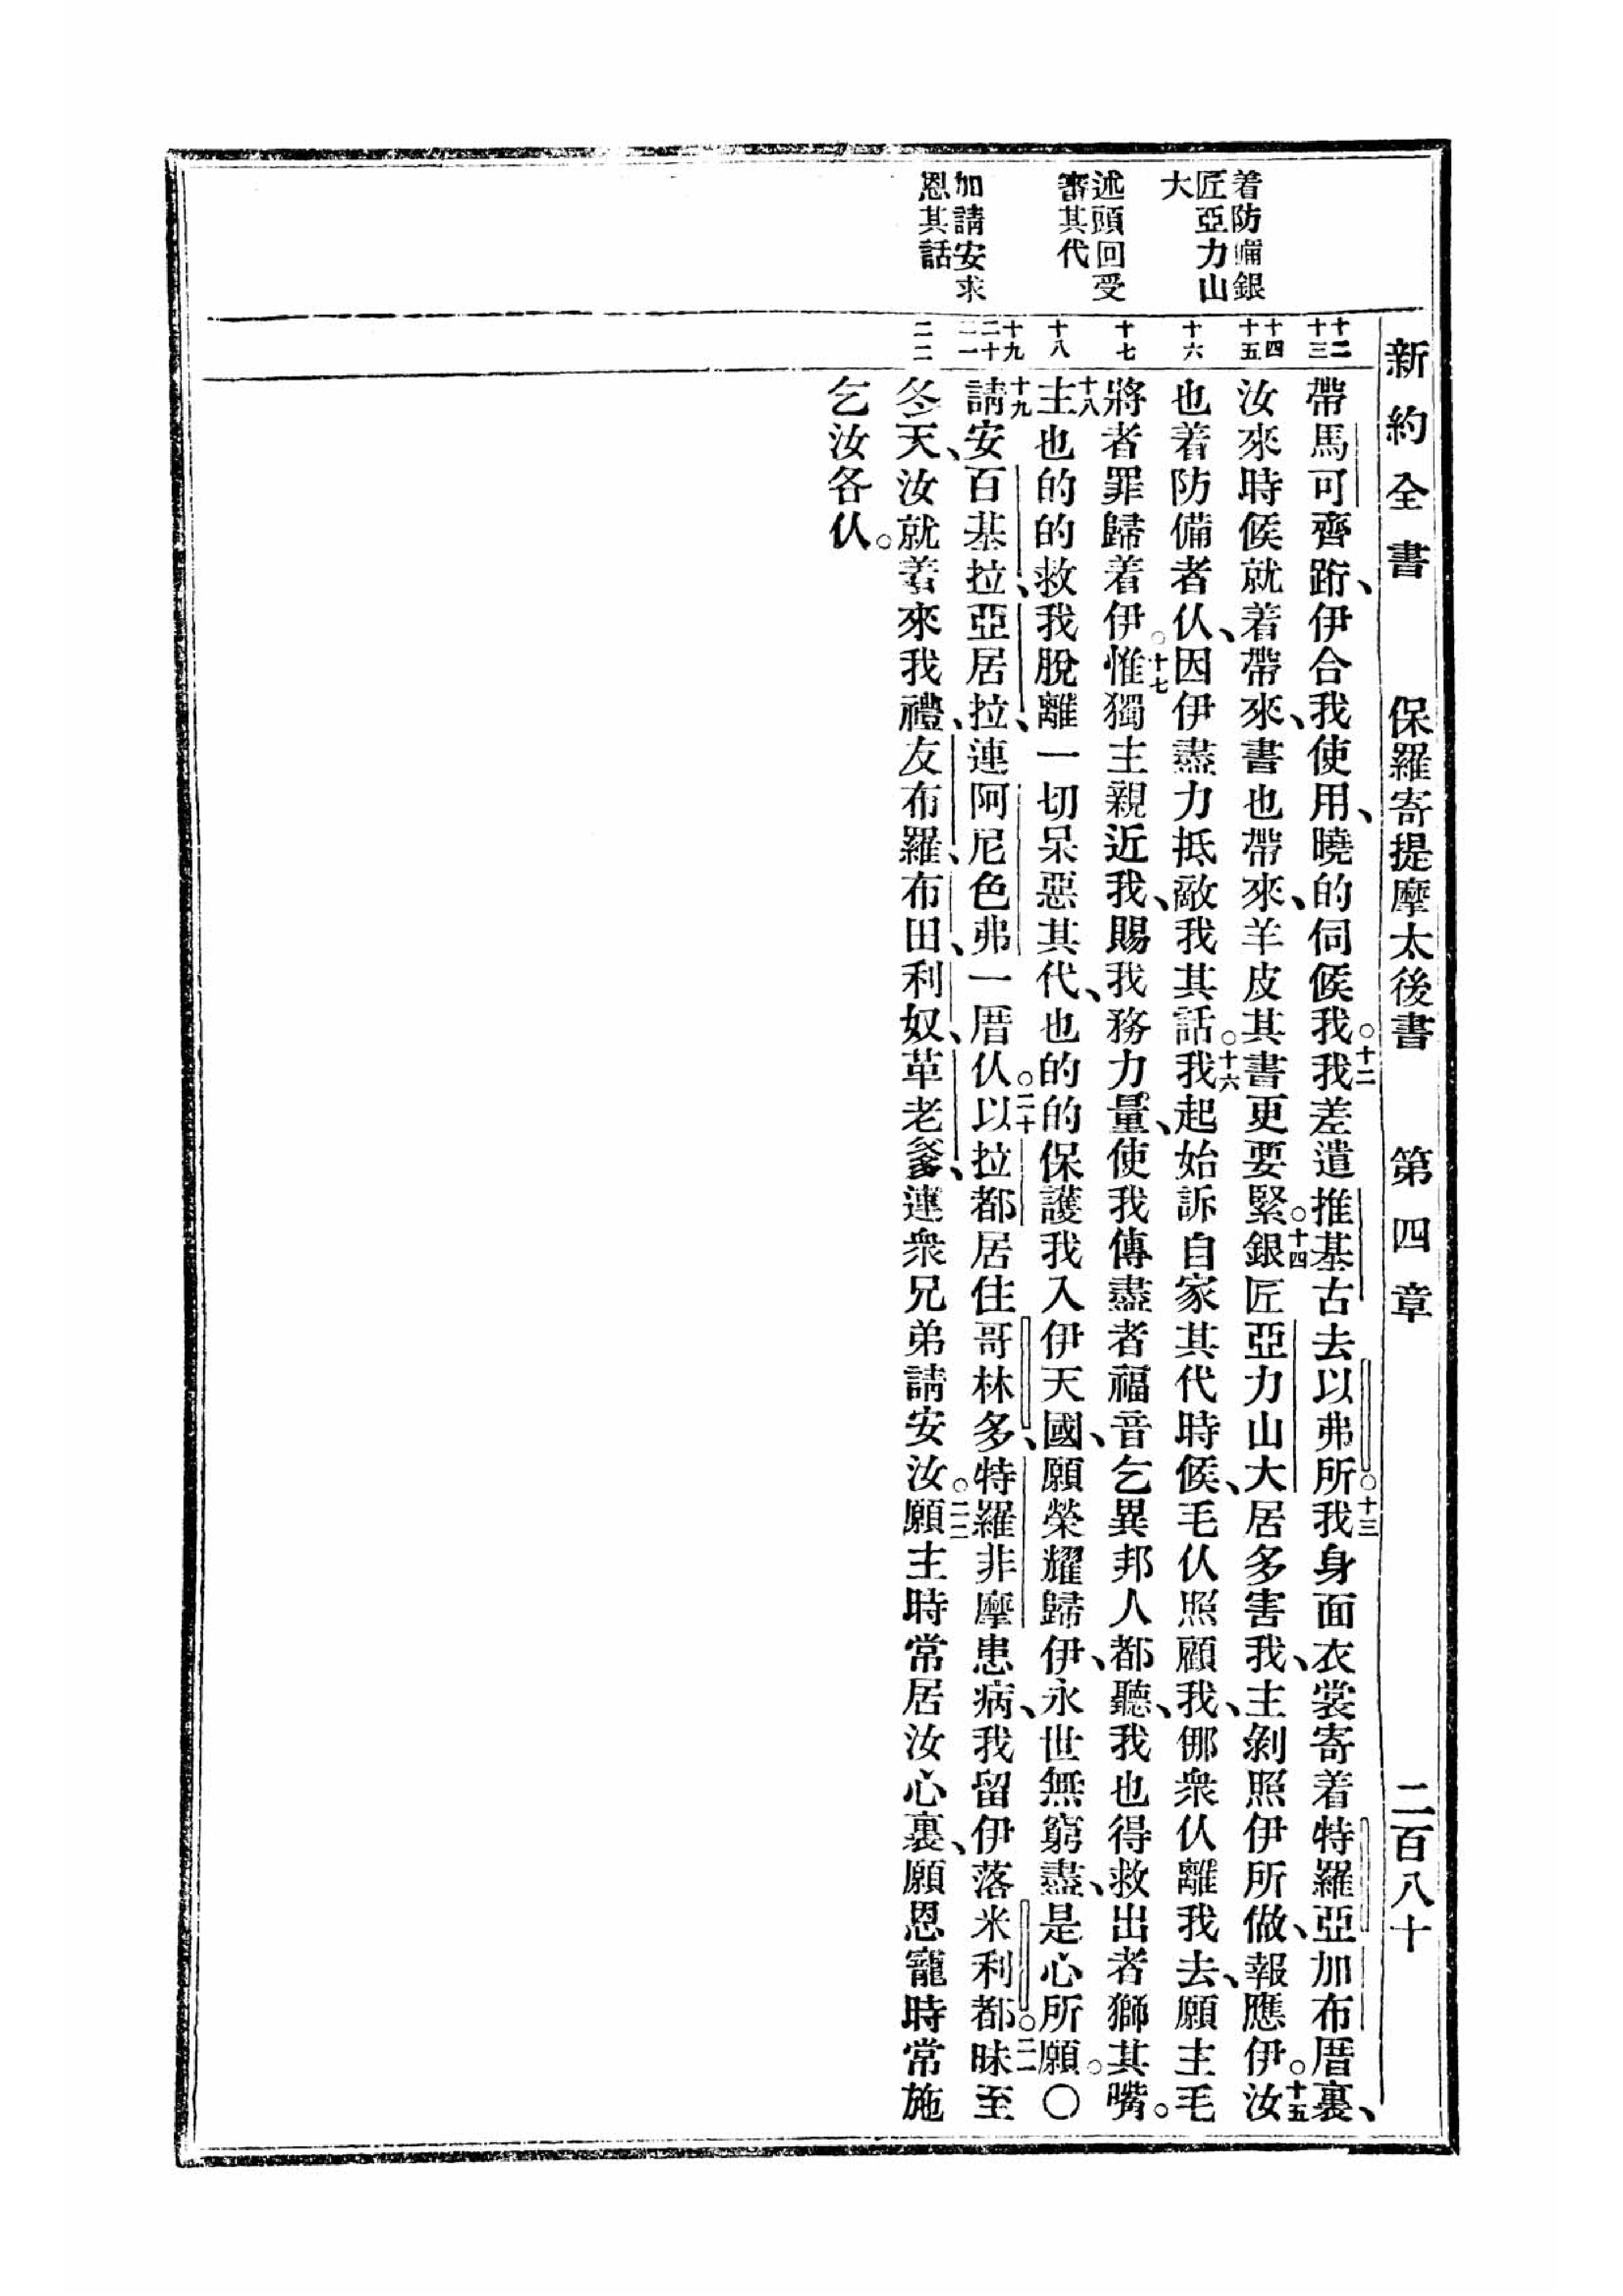 新約全書 保羅寄提摩太後書 第四章 二百八十
着防備銀
匠亞力山
大
述頭回受
審其代
加請安求
恩其話
十二
十三
十四
十五
十六
十七
十八
十九
二十
二一
二二
帶馬可齊跴、伊合我使用、曉的伺候我。十二我差遣推基古去以弗所。十三我身面衣裳寄着特羅亞加布厝裏、
汝來時候就着帶來、書也帶來、羊皮其書更要緊。十四銀匠亞力山大居多害我、主剝照伊所做、報應伊。十五汝
也着防備者仈、因伊盡力抵敵我其話。十六我起始訴自家其代時候、毛仈照顧我、㑚衆仈離我去、願主毛
將者罪歸着伊。十七惟獨主親近我、賜我務力量、使我傳盡者福音乞異邦人都聽、我也得救出者獅其嘴。
十八主也的的救我脫離一切呆惡其代、也的的保護我入伊天國、願榮耀歸伊、永世無窮盡、是心所願。○
十九請安百基拉、亞居拉、連阿尼色弗一厝仈。二十以拉都居住哥林多、特羅非摩患病、我留伊落米利都。二一昧至
冬天、汝就着來我禮、友布羅、布田、利奴、革老爹、連衆兄弟請安汝。二二願主時常居汝心裏、願恩寵時常施
乞汝各仈。